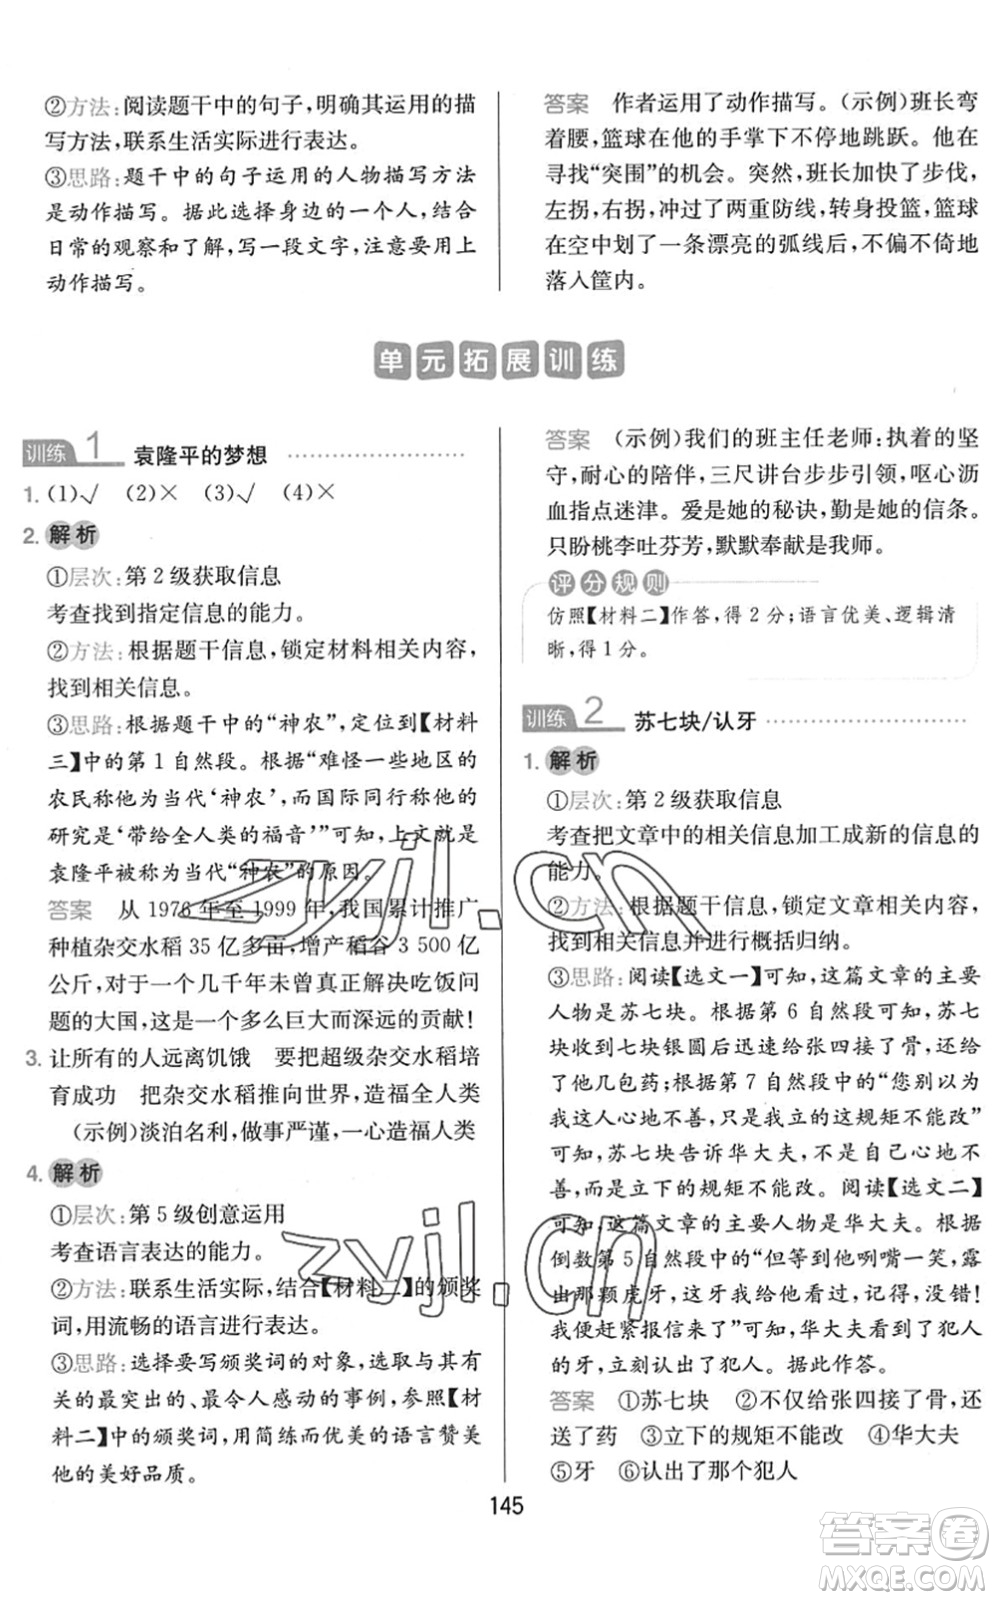 ②方法:阅读题干中的句子,明确其运用的描
写方法,联系生活实际进行表达。
③思路:题干中的句子运用的人物描写方法
是动作描写。据此选择身边的一个人,结合
日常的观察和了解,写一段文字,注意要用上
动作描写。
答案 作者运用了动作描写。(示例)班长弯
着腰,篮球在他的手掌下不停地跳跃。他在
寻找“突围”的机会。突然,班长加快了步伐,
左拐,右拐,冲过了两重防线,转身投篮,篮球
在空中划了一条漂亮的弧线后,不偏不倚地
落入筐内。
单元拓展训练
训练 1 袁隆平的梦想
1. (1)√ (2)× (3)√ (4)×
2. 解析
①层次:第2级获取信息
考查找到指定信息的能力。
②方法:根据题干信息,锁定材料相关内容,
找到相关信息。
③思路:根据题干中的“神农”,定位到【材料
三】中的第1自然段。根据“难怪一些地区的
农民称他为当代‘神农’,而国际同行称他的
研究是‘带给全人类的福音’”可知,上文就是
袁隆平被称为当代“神农”的原因。
答案 从1976年至1999年,我国累计推广
种植杂交水稻35亿多亩,增产稻谷3 500亿
公斤,对于一个几千年未曾真正解决吃饭问
题的大国,这是一个多么巨大而深远的贡献!
3. 让所有的人远离饥饿 要把超级杂交水稻培
育成功 把杂交水稻推向世界,造福全人类
(示例)淡泊名利,做事严谨,一心造福人类
4. 解析
①层次:第5级创意运用
考查语言表达的能力。
②方法:联系生活实际,结合【材料二】的颁奖
词,用流畅的语言进行表达。
③思路:选择要写颁奖词的对象,选取与其有
关的最突出的、最令人感动的事例,参照【材
料二】中的颁奖词,用简练而优美的语言赞美
他的美好品质。
答案 (示例)我们的班主任老师:执着的坚
守,耐心的陪伴,三尺讲台步步引领,呕心沥
血指点迷津。爱是她的秘诀,勤是她的信条。
只盼桃李吐芬芳,默默奉献是我师。
评分规则
仿照【材料二】作答,得2分;语言优美、逻辑清
晰,得1分。
训练 2 苏七块/认牙
1. 解析
①层次:第2级获取信息
考查把文章中的相关信息加工成新的信息的
能力。
②方法:根据题干信息,锁定文章相关内容,
找到相关信息并进行概括归纳。
③思路:阅读【选文一】可知,这篇文章的主要
人物是苏七块。根据第6自然段可知,苏七
块收到七块银圆后迅速给张四接了骨,还送
了他几包药;根据第7自然段中的“您别以为
我这人心地不善,只是我立的这规矩不能改”
可知,苏七块告诉华大夫,并不是自己心地不
善,而是立下的规矩不能改。阅读【选文二】
可知,这篇文章的主要人物是华大夫。根据
倒数第5自然段中的“但等到他咧嘴一笑,露
出那颗虎牙,这牙我给他看过,记得,没错!
我便赶紧报信来了”可知,华大夫看到了犯人
的牙,立刻认出了犯人。据此作答。
答案 ①苏七块 ②不仅给张四接了骨,还
送了药 ③立下的规矩不能改 ④华大夫
⑤牙 ⑥认出了那个犯人
145
zyjl.cn
zyjl.cn
答案圈
MXQE.COM